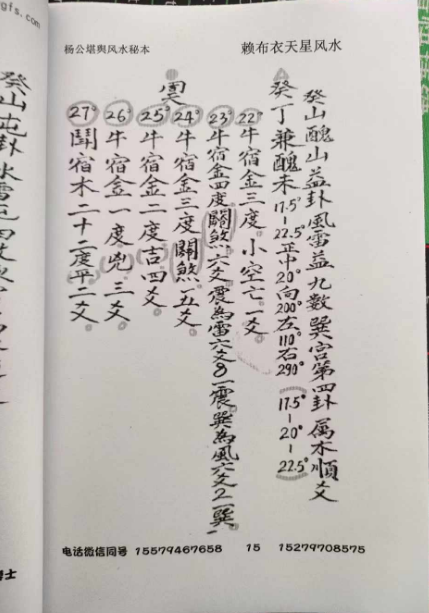 gfs.com
杨公堪舆风水秘本
赖布衣天星风水
癸山醜山益卦風雷益九數巽宮第四卦属木順爻
癸丁兼醜未17.5°-22.5°正中20°向200°左110°右290° 17.5°-20°-22.5°
22°牛宿金三度小空亡一爻
23°牛宿金四度關煞六爻震為雷六爻8一震巽為風六爻2一巽
24°牛宿金三度關煞五爻
25°牛宿金二度吉四爻
26°牛宿金一度兇三爻
27°鬪宿木二十二度平二爻
癸山屯卦水雷屯四
士
电话微信同号 15579467658 15 15279708575